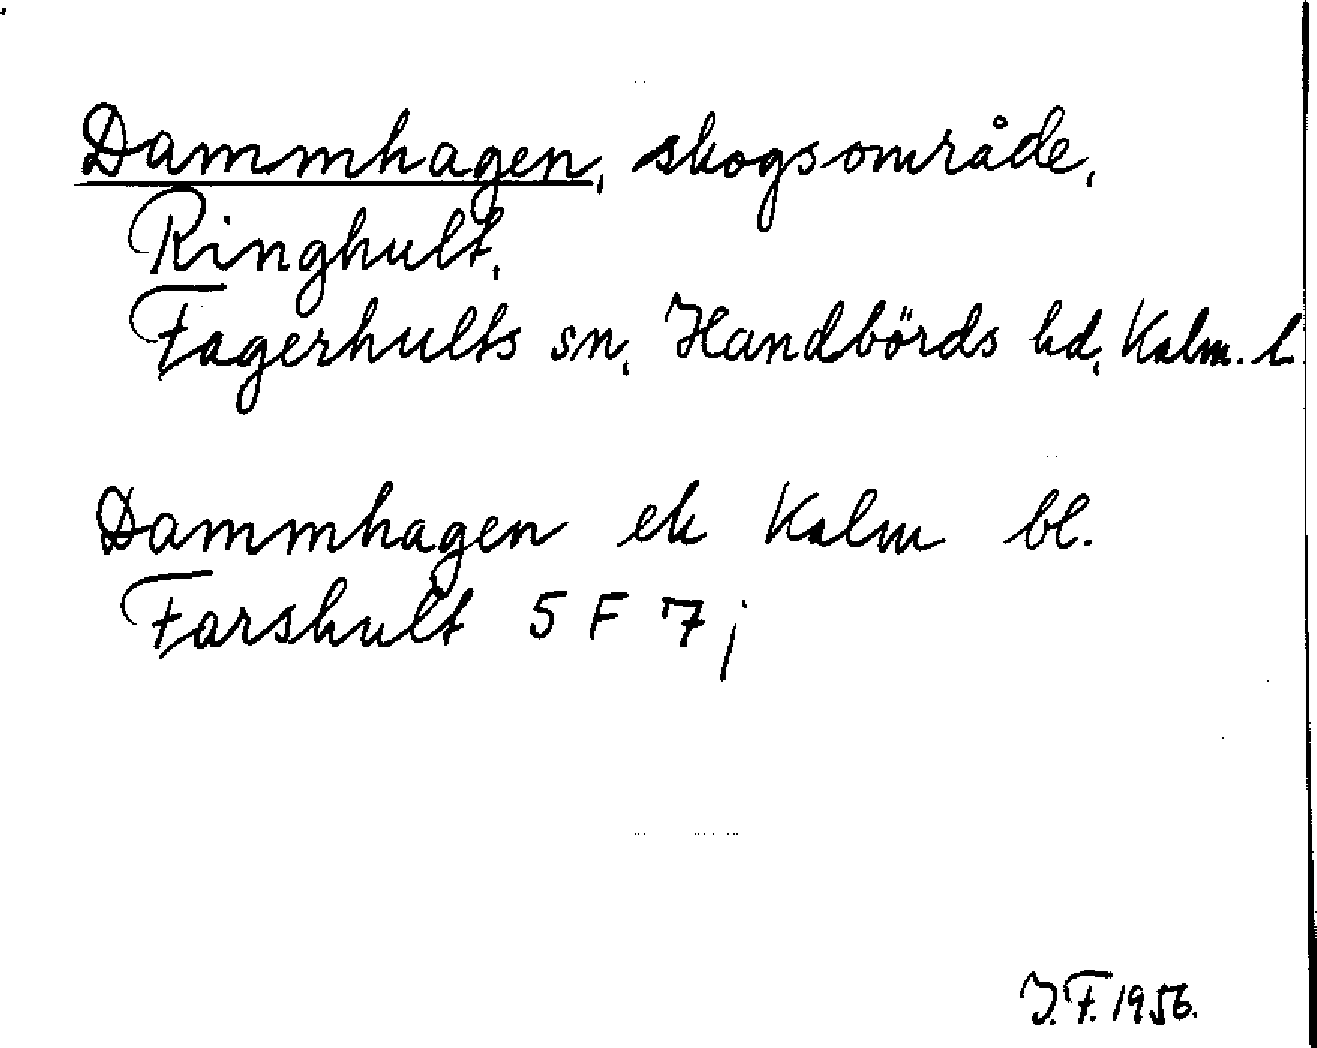 Dammhagen, skogsområde,
Ringhult,
Fagerhults sn, Handbörds hd, Kalm. l.
Dammhagen ek Kalm bl.
Farshult 5 F 7 j
J.F. 1956.